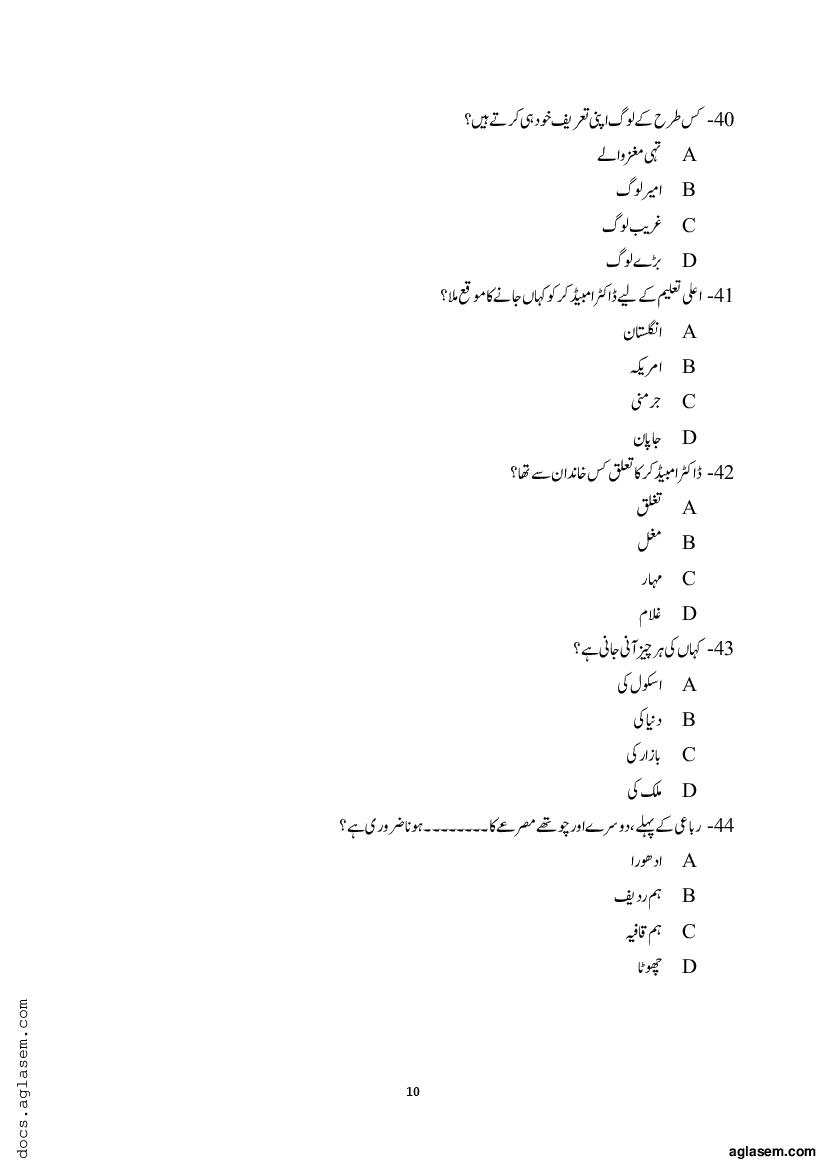 40- کس طرح کے لوگ اپنی تعریف خود ہی کرتے ہیں؟
A تہی مغز والے
B امیر لوگ
C غریب لوگ
D بڑے لوگ
41- اعلی تعلیم کے لیے ڈاکٹر امبیڈکر کو کہاں جانے کا موقع ملا؟
A انگلستان
B امریکہ
C جرمنی
D جاپان
42- ڈاکٹر امبیڈکر کا تعلق کس خاندان سے تھا؟
A تغلق
B مغل
C مہار
D غلام
43- کہاں کی ہر چیز آنی جانی ہے؟
A اسکول کی
B دنیا کی
C بازار کی
D ملک کی
44- رباعی کے پہلے، دوسرے اور چوتھے مصرعے کا ۔۔۔۔۔۔۔۔ ہونا ضروری ہے؟
A ادھورا
B ہم ردیف
C ہم قافیہ
D چھوٹا
docs.aglasem.com
10
aglasem.com